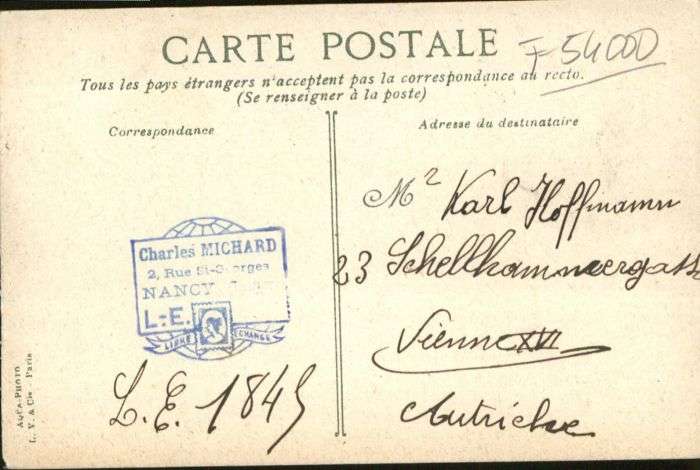 CARTE POSTALE
F 54000
Tous les pays étrangers n'acceptent pas la correspondance au recto.
(Se renseigner à la poste)
Correspondance
Adresse du destinataire
Mr Karl Hoffmann
23 Schellhammergasse
Vienne XVI
Autriche
Charles MICHARD
2, Rue St-Georges
NANCY
L.-E.
LIBRE ECHANGE
L. E. 1845
AQUA-PHOTO
L. V. & Cie - Paris